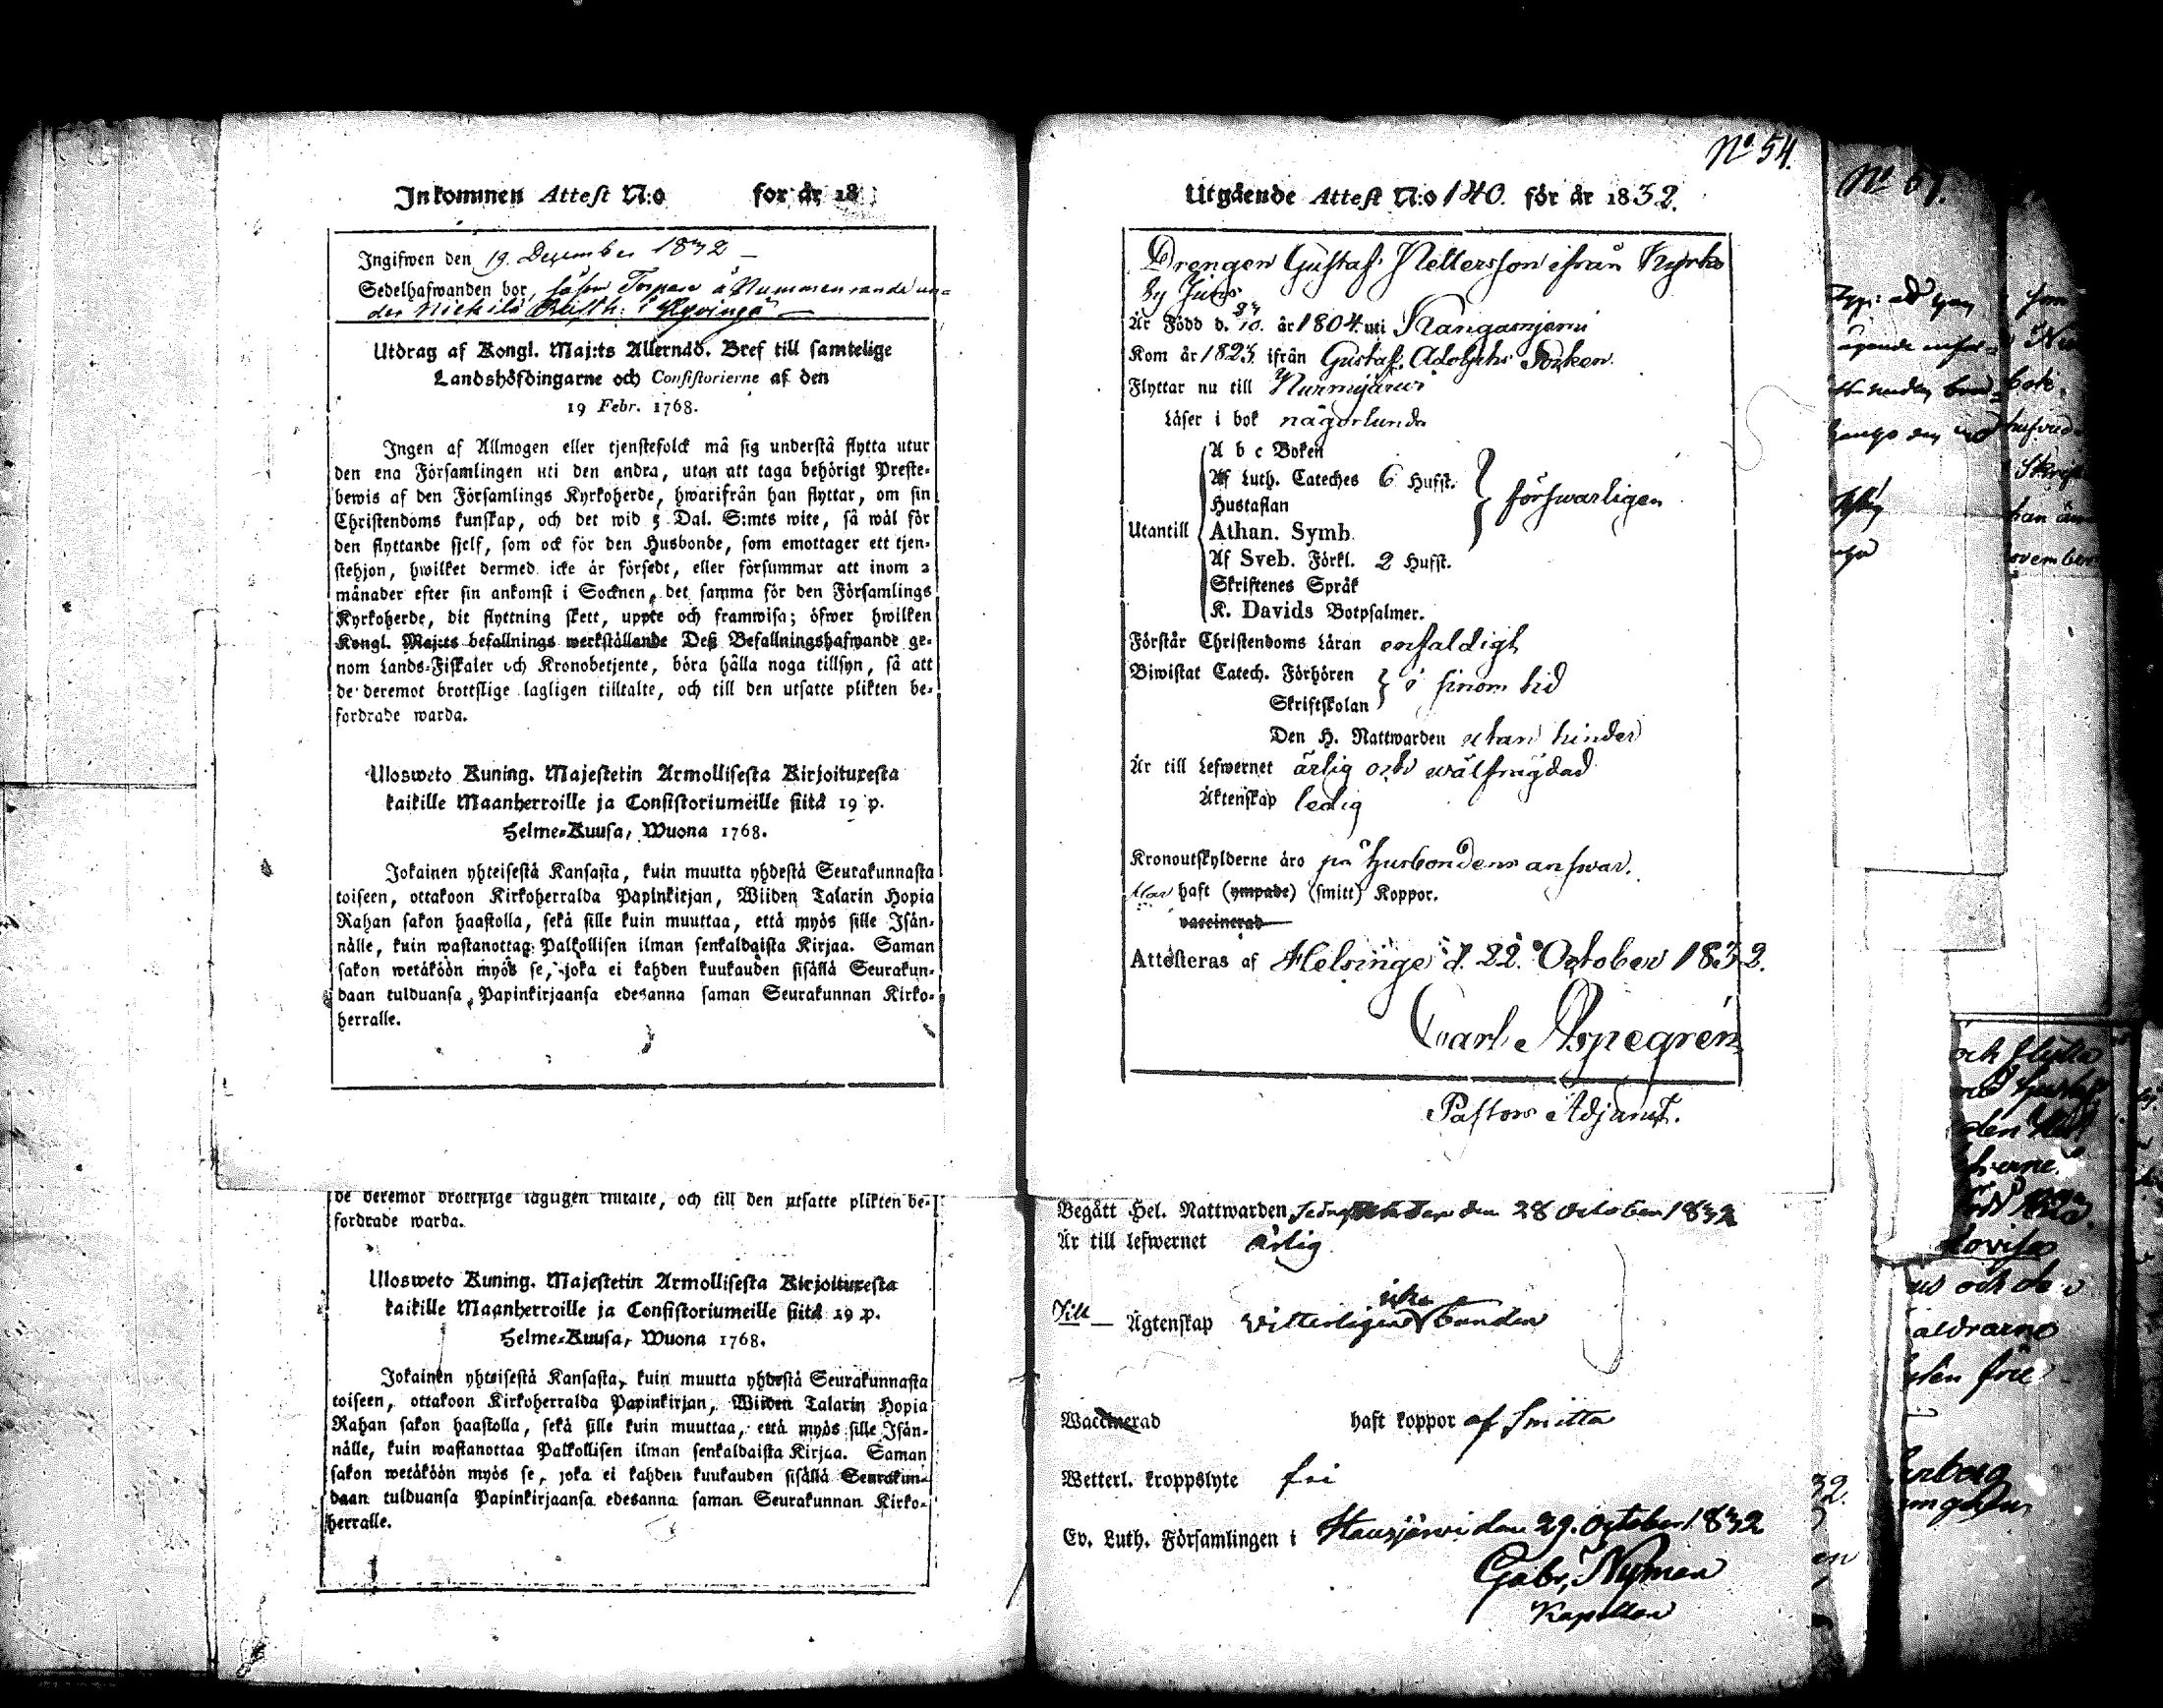 Inkommen Attest N:o for år 18
Ingifwen den 19. December 1832 —
Sedelhafwanden bor, såsom Torpare å Nummenranda un=
der Nickilä i Hyvinge —
Utdrag af Kongl. Maj:ts Allernåd. Bref till samtelige
Landshöfdingarne och Consistorierne af den
19 Febr. 1768.
Ingen af Allmogen eller tjenstefolck må sig understå flytta utur
den ena Församlingen uti den andra, utan att taga behörigt Preste-
bewis af den Församlings Kyrkoherde, hwarifrån han flyttar, om sin
Christendoms kunskap, och det wid 5 Dal. S:mts wite, så wäl för
den flyttande sjelf, som ock för den Husbonde, som emottager ett tjen-
stehjon, hwilket dermed icke är försedt, eller försummar att inom 2
månader efter sin ankomst i Socknen, det samma för den Församlings
Kyrkoherde, dit flyttning skett, uppte och framwisa; öfwer hwilken
Kongl. Maj:ts befallnings werkställande Deß Befallningshafwande ge-
nom Lands-Fiskaler och Kronobetjente, böra hålla noga tillsyn, så att
de deremot brottslige lagligen tilltalte, och till den utsatte plikten be-
fordrade warda.
Ulosweto Kuning. Majestetin Armollisesta Kirjoituxesta
kaikille Maanherroille ja Consistoriumeille siitä 19 p.
Helme-Kuusa, Wuona 1768.
Jokainen yhteisestä Kansasta, kuin muutta yhdestä Seurakunnasta
toiseen, ottakoon Kirkoherralda Papinkirjan, Wiiden Talarin Hopia
Rahan sakon haastolla, sekä sille kuin muuttaa, että myös sille Isän-
nälle, kuin wastanottaa Palkollisen ilman senkaldaista Kirjaa. Saman
sakon wetäköön myös se, joka ei kahden kuukauden sisällä Seurakun-
daan tulduansa, Papinkirjaansa edesanna saman Seurakunnan Kirko-
herralle.
de deremot brottslige lagligen tilltalte, och till den utsatte plikten be-
fordrade warda.
Ulosweto Kuning. Majestetin Armollisesta Kirjoituxesta
kaikille Maanherroille ja Consistoriumeille siitä 19 p.
Helme-Kuusa, Wuona 1768.
Jokainen yhteisestä Kansasta, kuin muutta yhdestä Seurakunnasta
toiseen, ottakoon Kirkoherralda Papinkirjan, Wiiden Talarin Hopia
Rahan sakon haastolla, sekä sille kuin muuttaa, että myös sille Isän-
nälle, kuin wastanottaa Palkollisen ilman senkaldaista Kirjaa. Saman
sakon wetäköön myös se, joka ei kahden kuukauden sisällä Seurakun-
daan tulduansa Papinkirjaansa edesanna saman Seurakunnan Kirko-
herralle.
No 54.
Utgående Attest N:o 140. för år 1832.
Drengen Gustaf ifrån Kyrko
by
Är Född d. år 1804. uti Kangasnjemi
Kom år 1823. ifrån Gustaf Adolphs Socken.
Flyttar nu till Nurmijärvi
Läser i bok någorlunda
A b c Boken
Af Luth. Cateches 6 Hufst.
Hustaflan
försvarligen
Utantill Athan. Symb.
Af Sveb. Förkl. 2 Hufst.
Skriftenes Språk
K. Davids Botpsalmer.
Förstår Christendoms Läran enfaldigt
Biwistat Catech. Förhören
Skriftskolan
i sinom tid
Den H. Nattwarden utan hinder
Är till Lefwernet ärlig och wälfrägdad
Äktenskap ledig
Kronoutskylderne äro på husbondens answar.
Har haft (ympade) (smitt) Koppor.
vaccinerad
Attesteras af Helsinge d. 22. October 1832.
Carl Aspegrén
Pastors Adjunct.
Begått Hel. Nattwarden den 28 October 1832
Är till lefwernet ärlig
Till — Ägtenskap vitterligen icke bunden
Waccinerad haft koppor af Smitta
Wetterl. kroppslyte fri
Ev. Luth. Församlingen i Hausjärvi den 29. October 1832
Gabr. Nyman
Kapellan